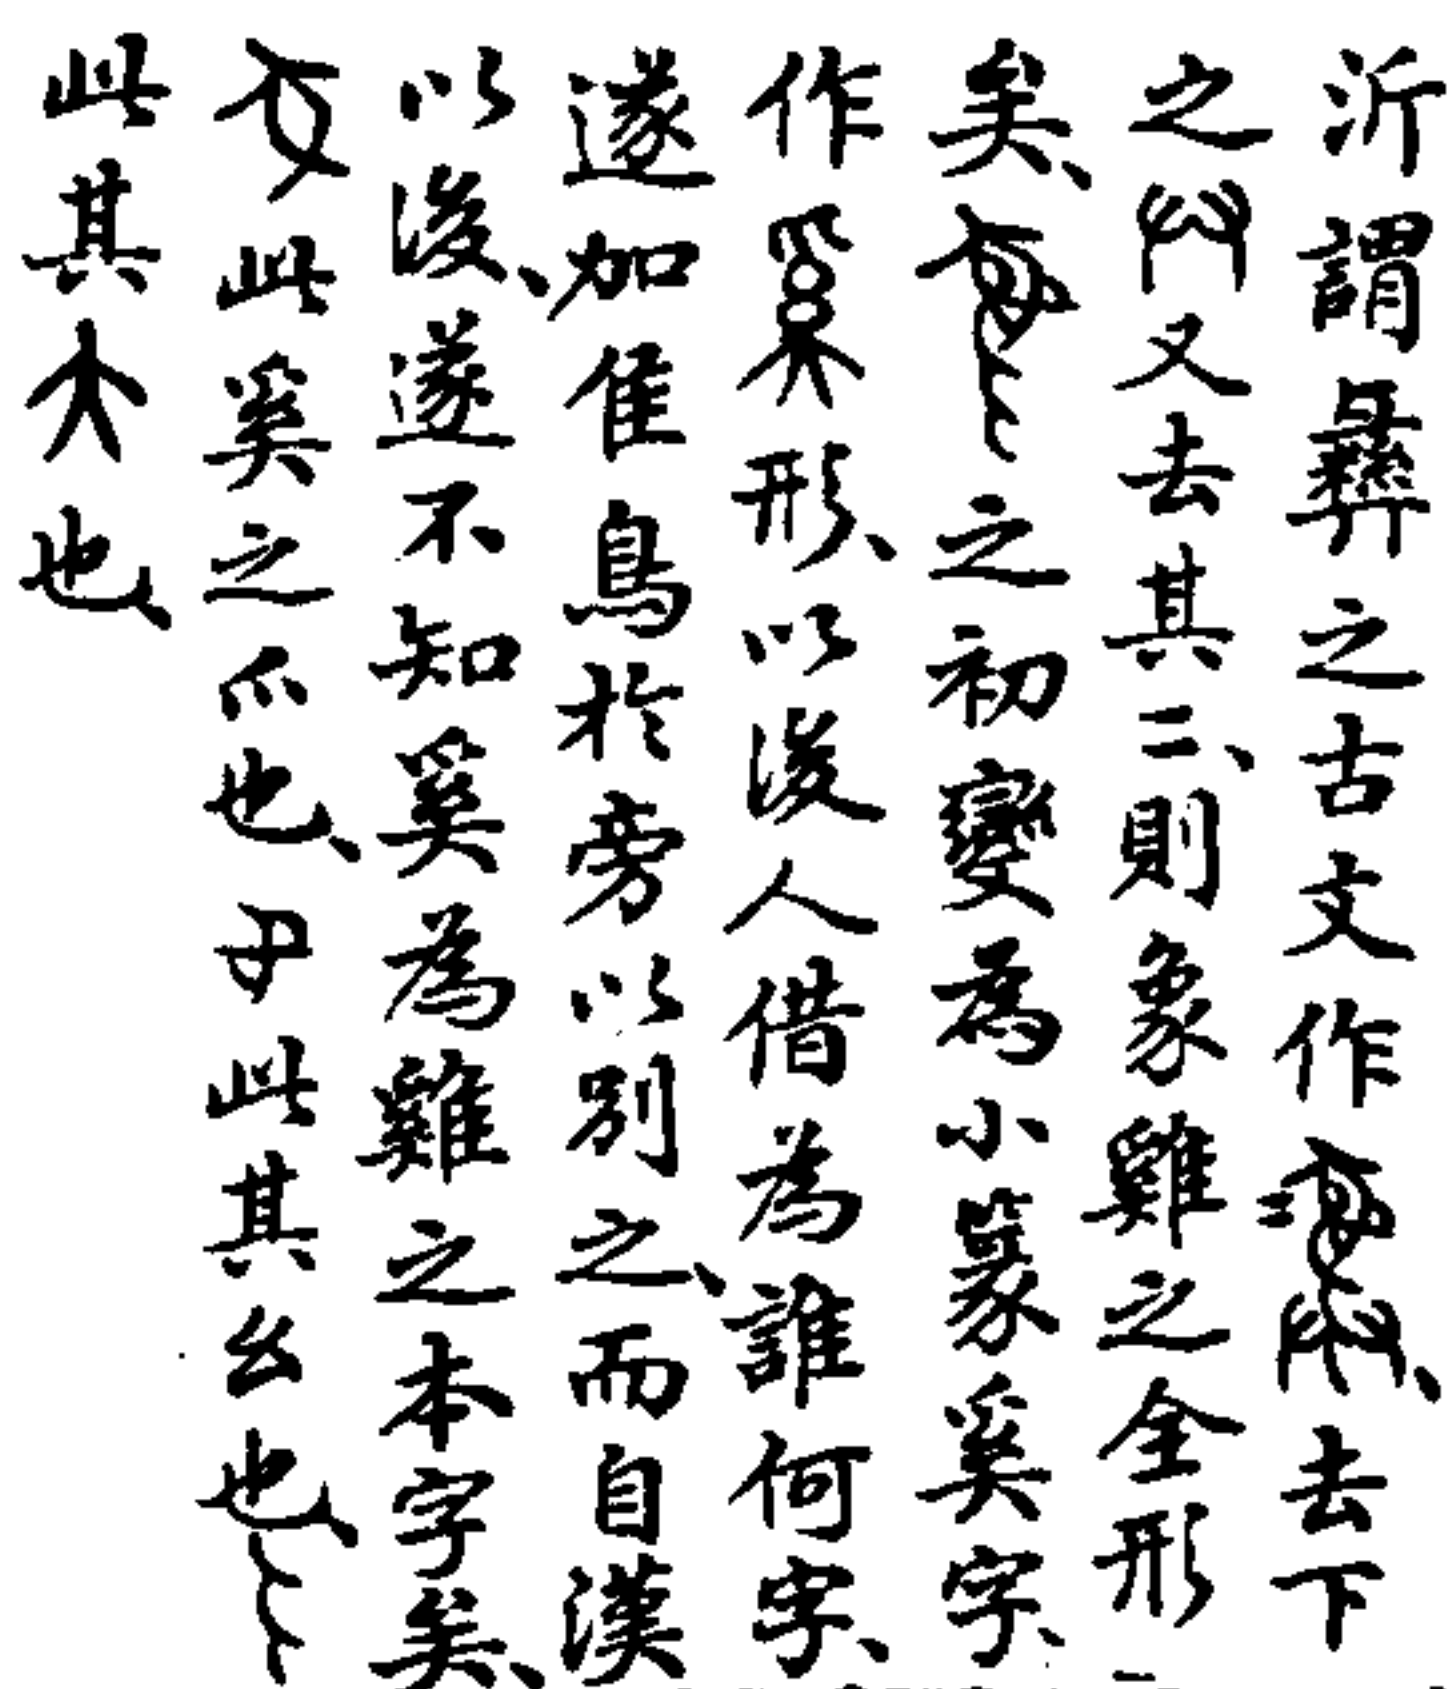 沂謂彝之古文作、去下
之又去其二、則象雞之全形
矣、之初變為小篆奚字、
作形、以後人借為誰何字、
遂加隹鳥於旁以别之、而自漢
以後、遂不知奚為雞之本字矣、
此奚之爪也、此其幺也、
此其大也、